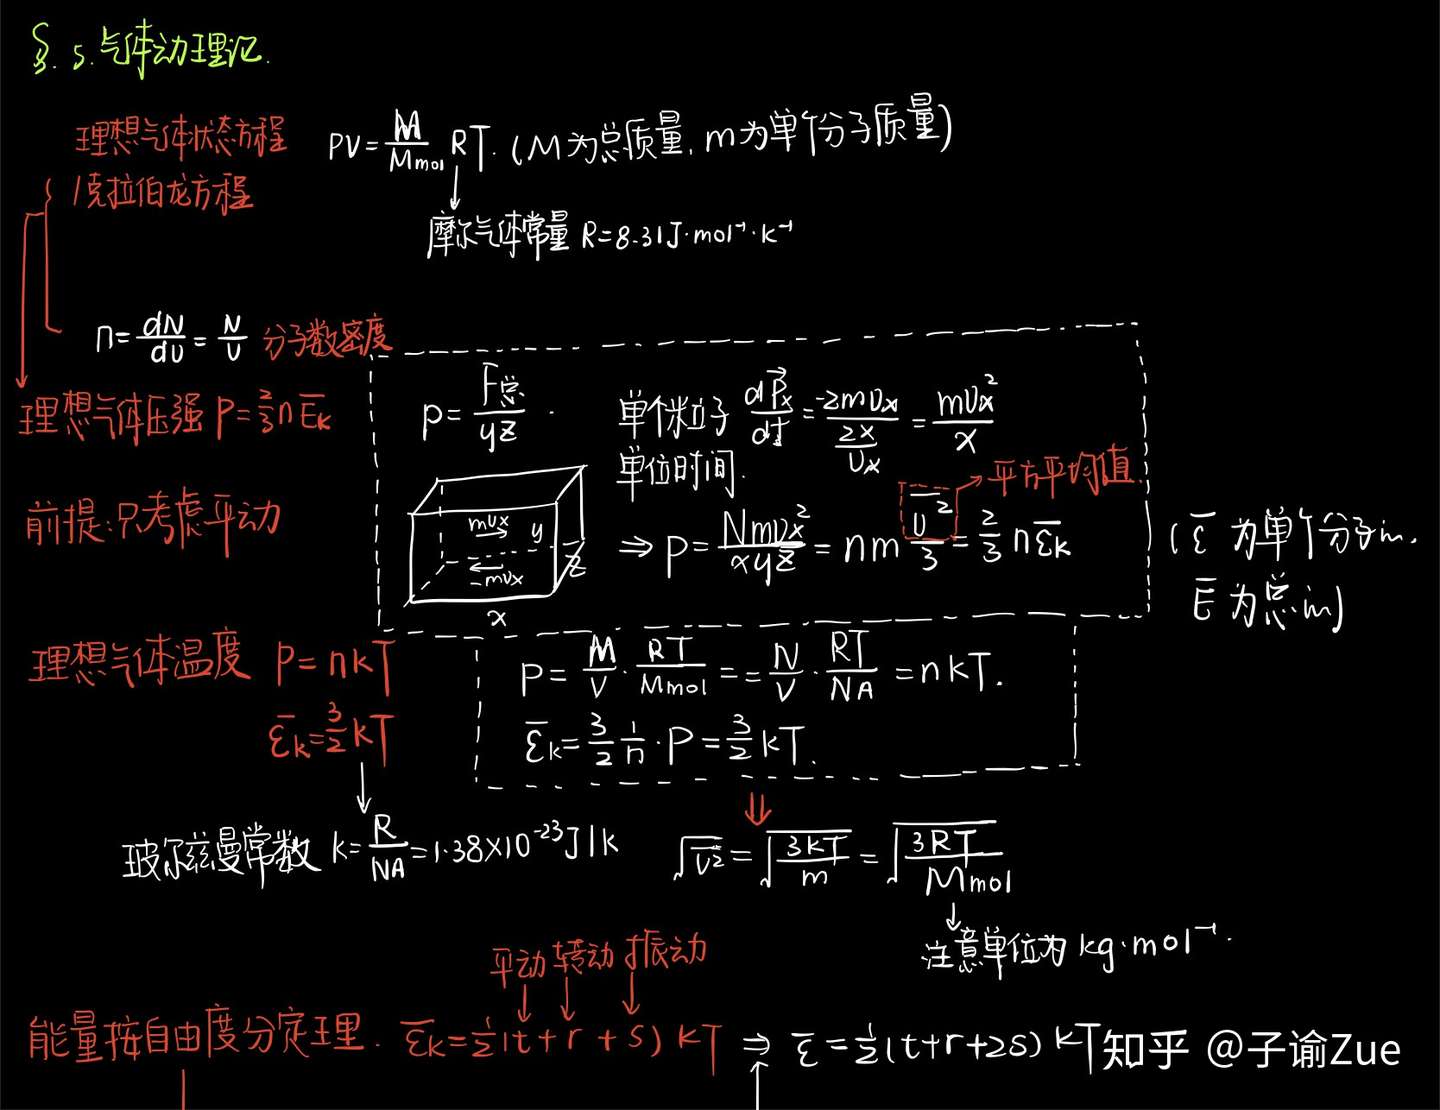 §.5.气体动理论.
理想气体状态方程
/克拉伯龙方程
PV=M/Mmol RT.(M为总质量,m为单个分子质量)
摩尔气体常量 R=8.31J·mol⁻¹·k⁻¹
n=dN/dV=N/V 分子数密度
理想气体压强 P=2/3 n ε̅k
前提:只考虑平动
p=F总/yz.
单个粒子 dP⃗x/dt=-2mvx/(2x/vx)=mvx²/x
单位时间.
平方平均值
mvx
y
z
-mvx
x
⇒P=Nmvx²/xyz=nm v̅²/3=2/3 n ε̅k
(ε̅ 为单个分子in.
E̅ 为总in)
理想气体温度 P=nkT
ε̅k=3/2 kT
P=M/V·RT/Mmol==N/V·RT/NA=nKT.
ε̅k=3/2 1/n·P=3/2 kT.
⇓
玻尔兹曼常数 k=R/NA=1.38×10⁻²³J/k
√v̅²=√(3KT/m)=√(3RT/Mmol)
注意单位为 kg·mol⁻¹.
平动 转动 振动
能量按自由度分定理. ε̅k=1/2(t+r+s)KT ⇒ ε̅=1/2(t+r+2s)KT
知乎 @子谕Zue